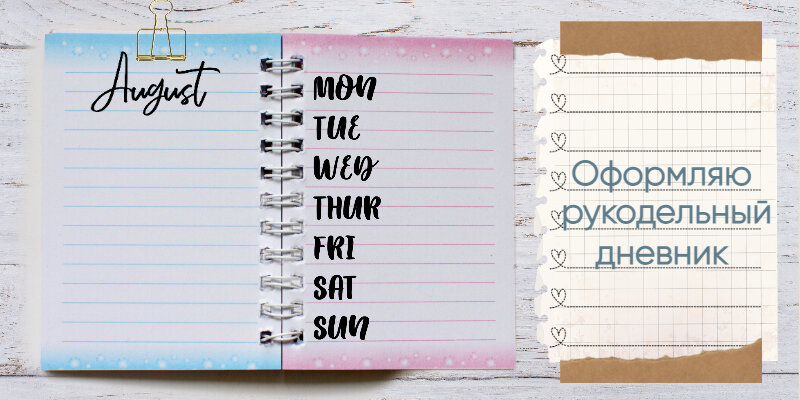 August
MON
TUE
WED
THUR
FRI
SAT
SUN
Оформляю
рукодельный
дневник